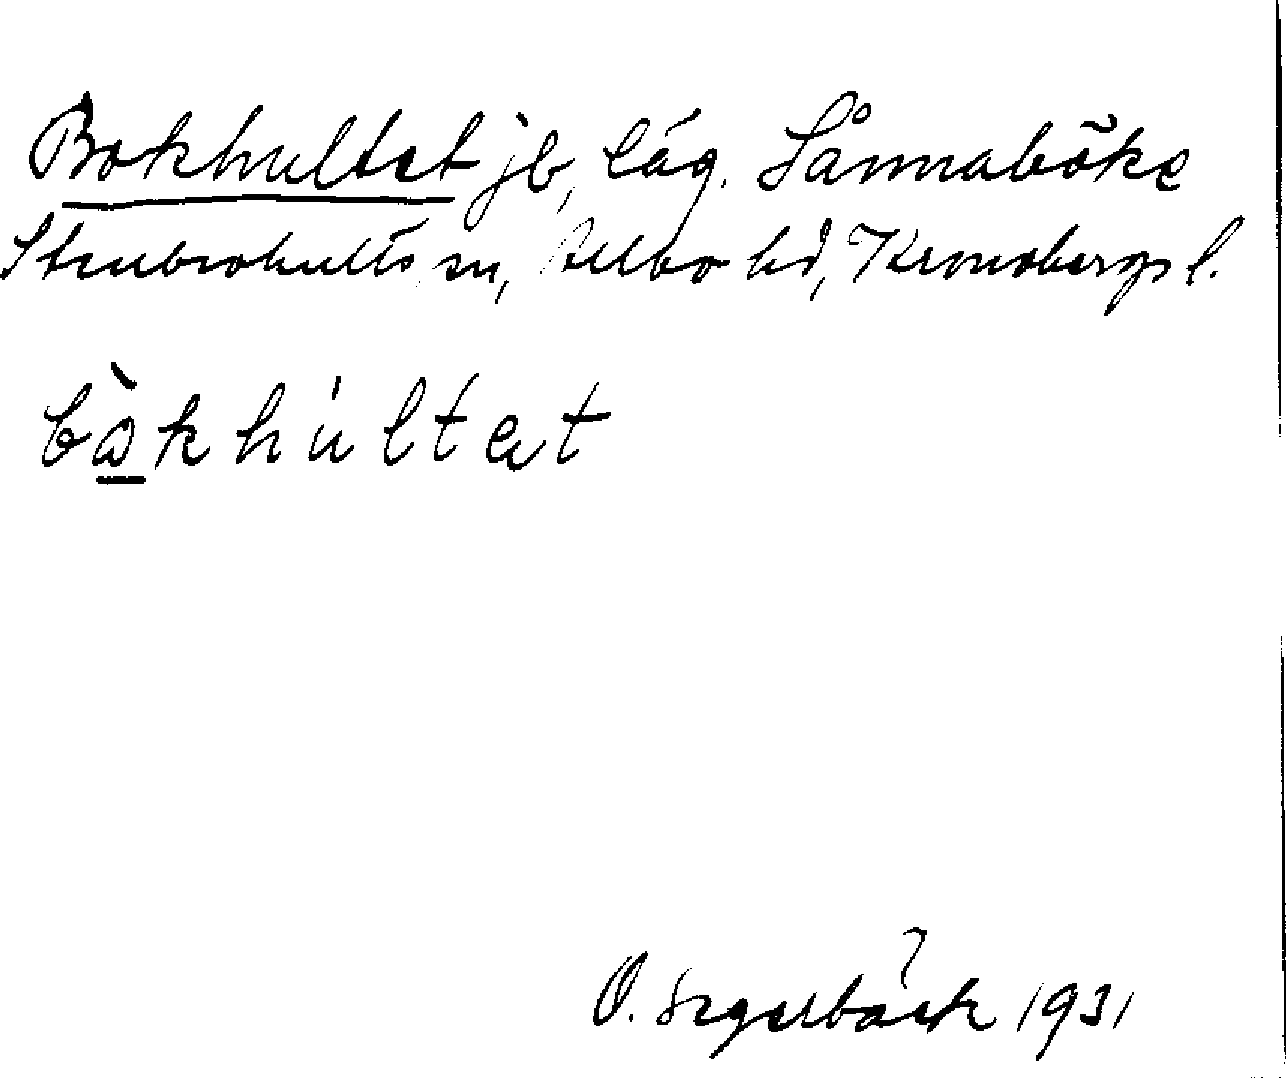 Bokhultet jb, läg. Sånnaböke
Stenbrohults sn, Allbo hd, Kronobergs l.
bòkhúltət
O. Segerbäck 1931